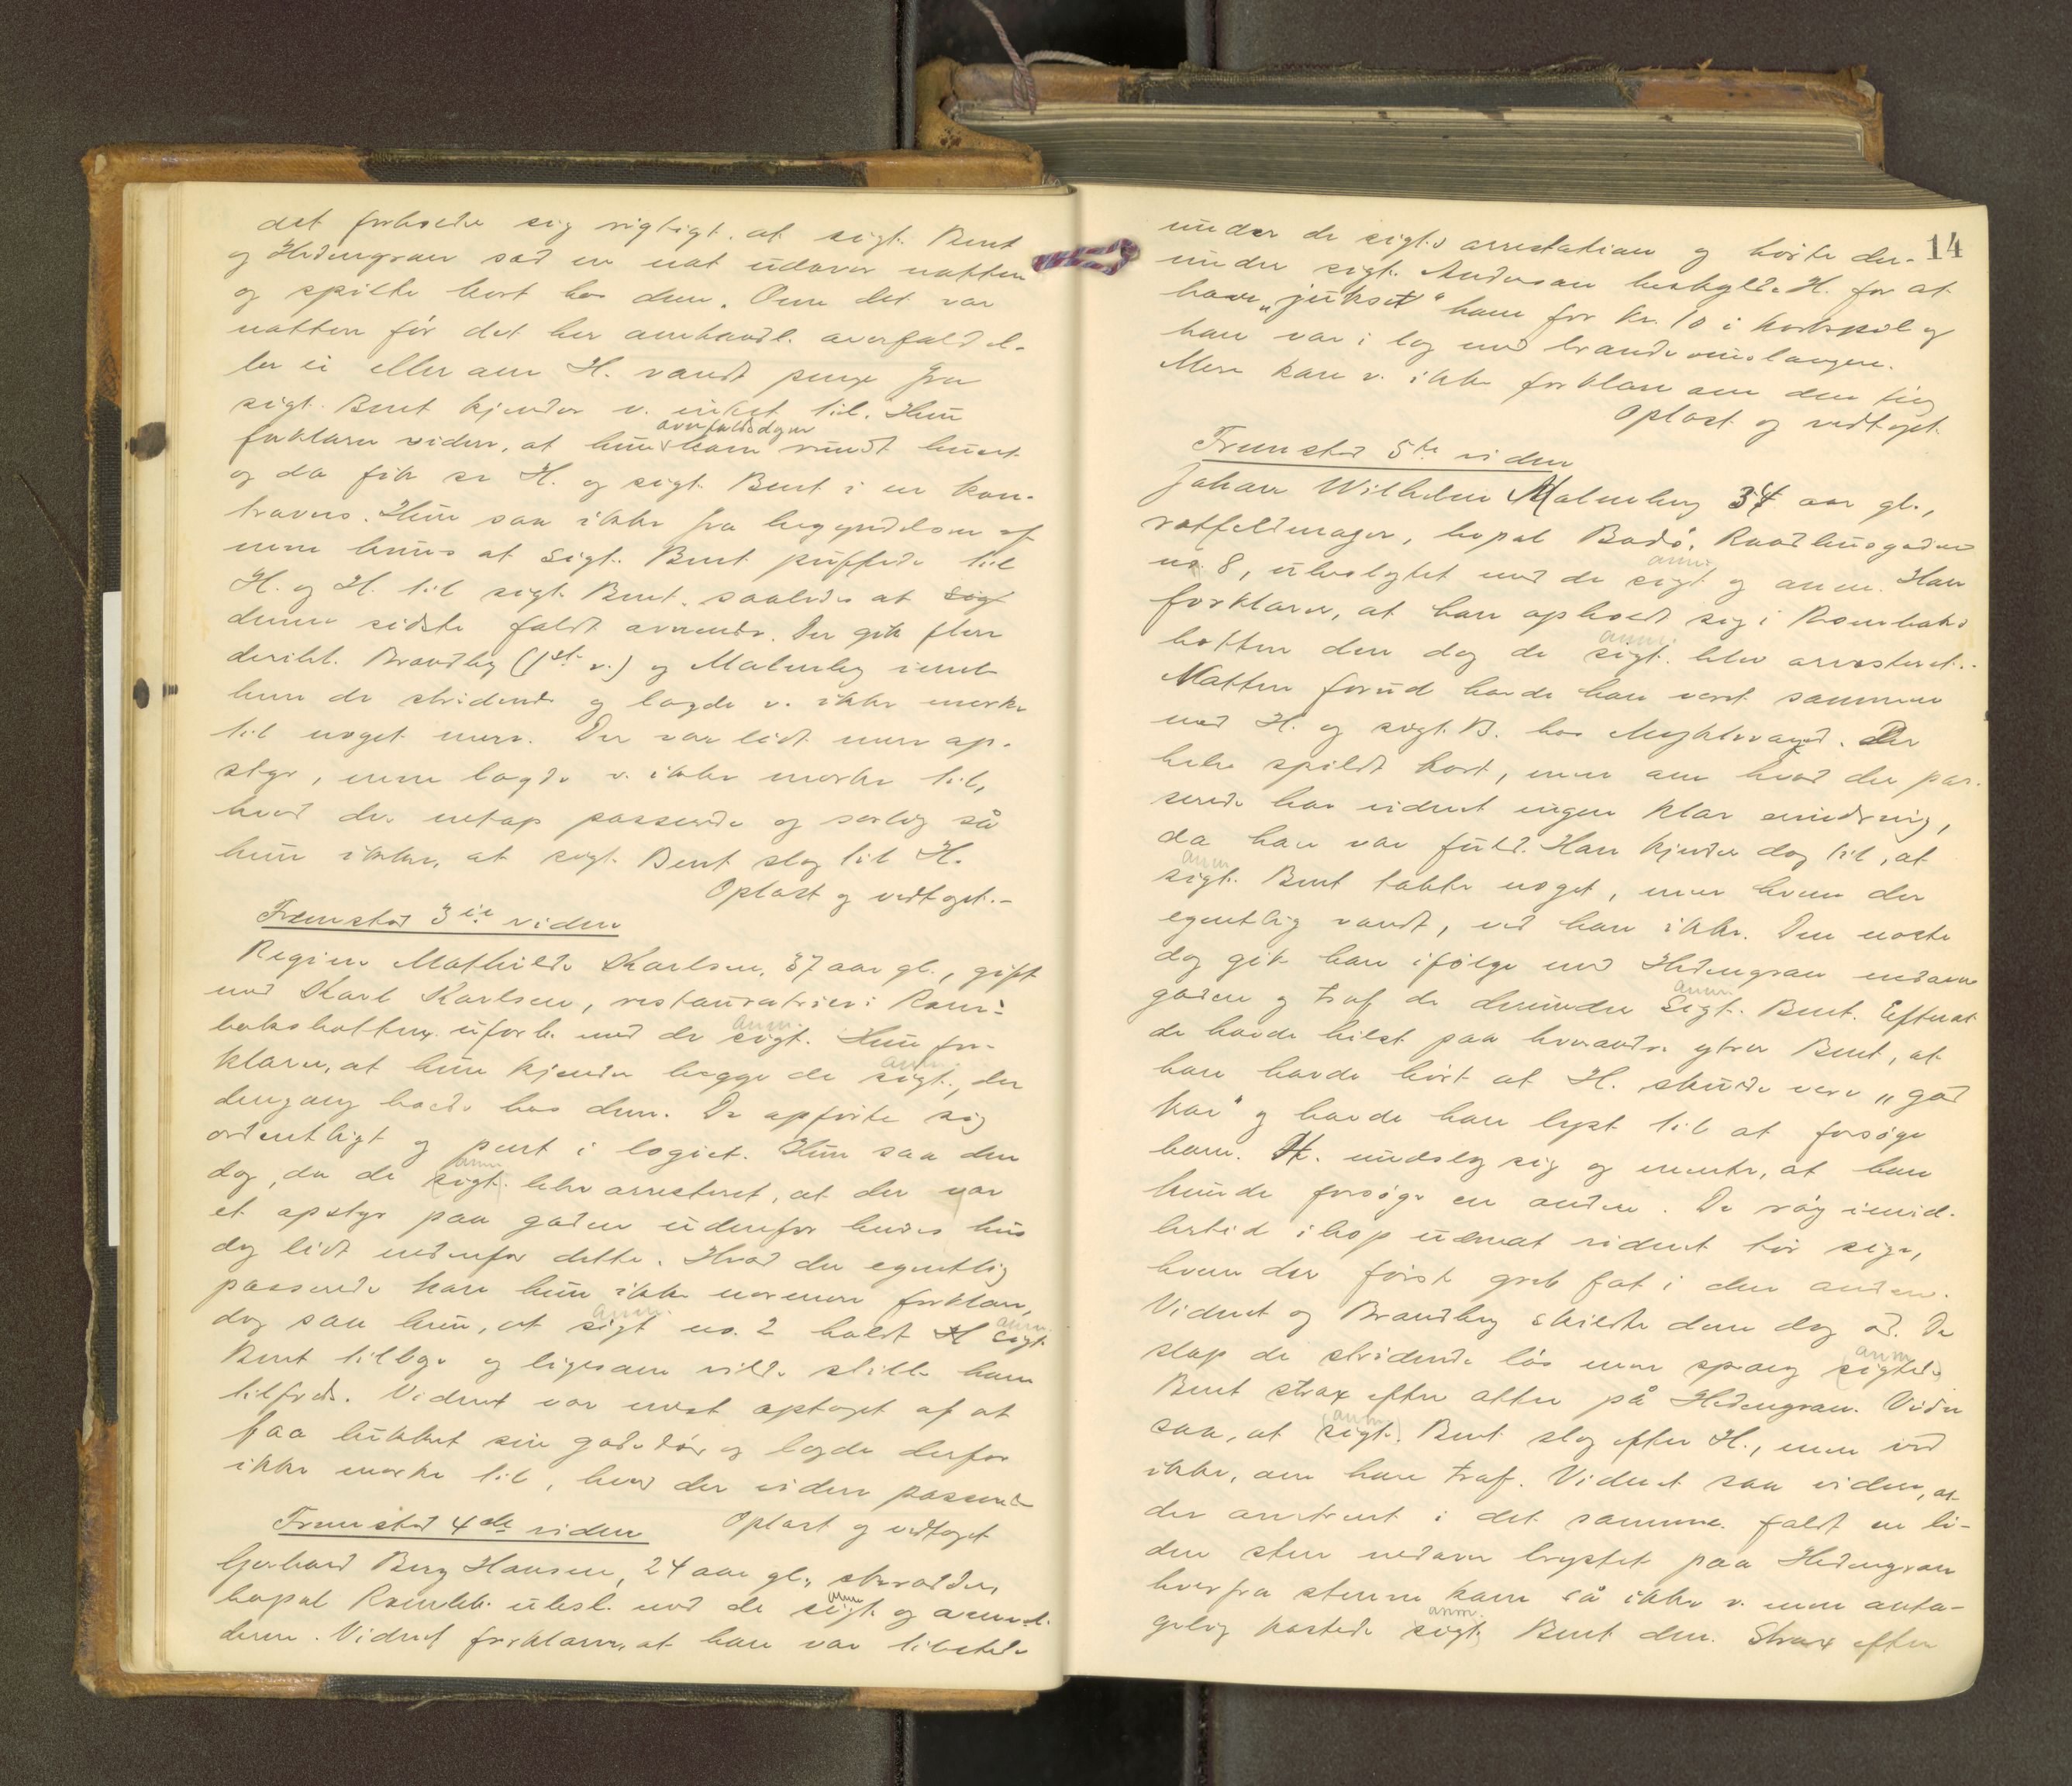 det forholdte sig rigtigt. at sigt. Bent
og Hedengran sad en nat udover natten
og spilte kort hos dem. Om det var
natten før det her omhandl. overfald el-
ler ei eller om H. vandt penge fra
sigt. Bent kjender v. intet til. Hun
forklarer videre, at hun overfaldsdagen kom rundt huset
og da fik se H. og sigt. Bent i en kon-
travers. Hun saa ikke fra begyndelsen af
men huns at sigt. Bent puffede til
H. og H. til sigt. Bent. saaledes at sig
denne sidste faldt overende. Der gik flere
derihl. Brandberg (1ste v.) og Malmberg imel-
lem de stridende og lagde v. ikke merke
til noget mere. Der var lidt mere op-
styr, men lagde v. ikke merke til,
hvad der netop passerede og særlig så
hun ikke, at sigt. Bent slog til H.
Oplæst og vedtaget.-
Fremstod 3die vidne
Regine Mathilde Karlsen, 37 aar gl., gift
med Karl Karlsen, restauratrice i Rom-
bakbotten. uforb. med de sigt. anm. Hun for-
klarer, at hun kjender begge de sigt. anm., der
dengang boede hos dem. De opførte sig
ordentligt og pent i logiet. Hun saa den
dag, da de sigt. anm. blev arresteret, at der var
et opstyr paa gaden udenfor hendes hus
dog lidt nedenfor dette. Hvad der egentlig
passerede kan hun ikke nærmere forklare,
dog saa hun, at sigt anm. no. 2 holdt H sigt. anm.
Bent tilbage og ligesom vilde stille ham
tilfreds. Vidnet var mest optaget af at
faa lukket sin gadedør og lagde derfor
ikke merke til, hvad der videre passerede
Oplæst og vedtaget
Fremstod 4de vidne
Gerhard Berg Hansen, 24 aar gl., skrædder,
bopæl Rombb. ubesl. med de sigt. anm og anmel-
deren. Vidnet forklarer, at han var tilstede
14
under de sigtes arrestation og hørte der-
under sigt. Anderson beskylde H. for at
have „jukset“ ham for kr. 10 i kortspil og
han var i lag med brændevinslangere.
Mere kan v. ikke forklare om den ting
Oplæst og vedtaget.
Fremstod 5te vidne
Johan Wilhelm Malmberg 34 aar gl.,
vatfeldmager, bopæl Bodø, Raadhusgaden
no. 8, ubeslegtet med de sigt anm. og anm. Han
forklarer, at han opholdt sig i Rombaks
botten den dag de sigt. anm. blev arresteret.-
Natten forud havde han veret sammen
med H. og sigt. B. hos Myklevand. Der
blev spildt kort, men om hvad der pas-
serede har vidnet ingen klar erindring,
da han var fuld. Han kjender dog til, at
sigt. anm Bent tabte noget, men hvem der
egentlig vandt, ved han ikke. Den neste
dag gik han ifølge med Hedengran nedover
gaden og traf de derunder Sigt. anm. Bent. Efterat
de havde hilst paa hverandre ytrer Bent, at
han havde hørt at H. skulde være „god
kar“ og havde han lyst til at forsøge
ham. H. undslog sig og mente, at han
kunde forsøge en anden. De røg imid-
lertid ihop udenat vidnet tør sige,
hvem der først greb fat i den anden.
Vidnet og Brandberg skildte dem dog ad. De
slap de stridende løs men sprang sigtede anm
Bent strax efter atter på Hedengran. Vidn
saa, at sigt. (anm.) Bent slog efter H., men ved
ikke, om han traf. Vidnet saa videre, at
der omtrent i det samme faldt en li-
den sten nedover brystet paa Hedengran
hvorfra stenen kom så ikke v. men anta-
gelig kastede sigt. anm. Bent den. Strax efter